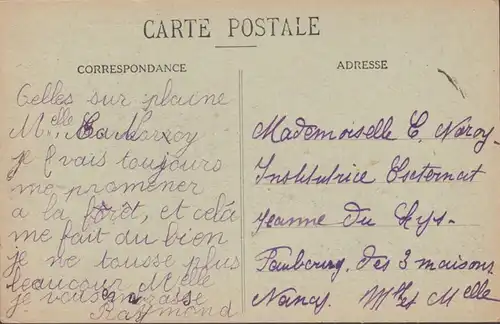 CARTE POSTALE
CORRESPONDANCE
Celles sur plaine
Melle
je vais toujours
me promener
a la forêt, et celà
me fait du bien
je ne tousse plus
beaucour Melle
je vous embrasse
Raymond
ADRESSE
Mademoiselle C. Naroy
Institutrice Externat
Jeanne du Lys
Faubourg des 3 maisons
Nancy. Mthe et Melle